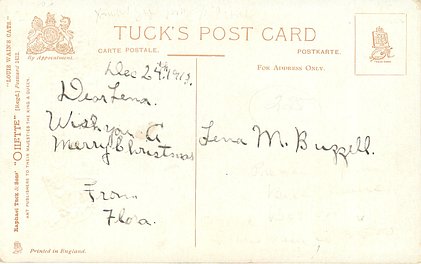 TUCK'S POST CARD
By Appointment.
CARTE POSTALE.
POSTKARTE.
FOR ADDRESS ONLY.
"LOUIS WAIN'S CATS"
Raphael Tuck & Sons' "OILETTE" [Regd.] Postcard
ART PUBLISHERS TO THEIR MAJESTIES THE KING & QUEEN
Dec 24th 1913.
Dear Lena.
Wish you A
Merry Christmas
From
Flora.
Lena M. Buzzell.
Printed in England.